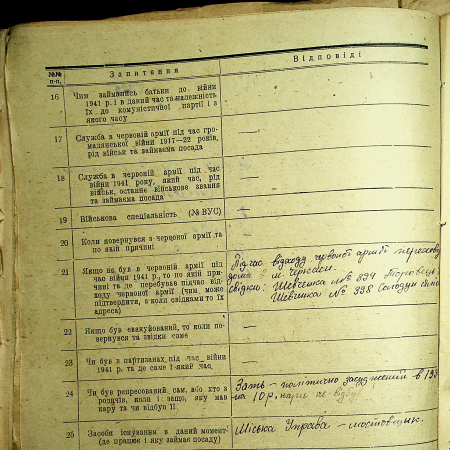 №№ п.п.
Запитання
Відповіді
16 Чим займались батьки до війни
1941 р. і в даний час та належність
їх до комуністичної партії і з
якого часу
—
17 Служба в червоній армії під час гро-
мадянської війни 1917—22 років,
рід військ та займаєма посада
—
18 Служба в червоній армії під час
війни 1941 року, який час, рід
військ, останнє військове звання
та займаєма посада
—
19 Військова спеціяльність (№ ВУС)
—
20 Коли повернувся з червоної армії та
по якій причині
—
21 Якщо не був в червоній армії під
час війни 1941 р., то по якій при-
чині та де перебував підчас від-
ходу червоної армії (чим може
підтвердити, з коли свідками то їх
адреса)
Підчас відходу червоної армії перебував
дома в м. Черкаси.
свідки: Шевченка № 394
Шевченка № 398
22 Якщо був евакуйований, то коли по-
вернувся та звідки саме
—
23 Чи був в партизанах під час війни
1941 р. та де саме і який час
—
24 Чи був репресований, сам, або хто з
родичів, коли і защо, яку мав
кару та чи відбув її
Зять — політично засуджений в 193
на 10 р. кари не відбув.
25 Засоби існування в даний момент
(де працює і яку займає посаду)
Міська Управа — мостовщик.